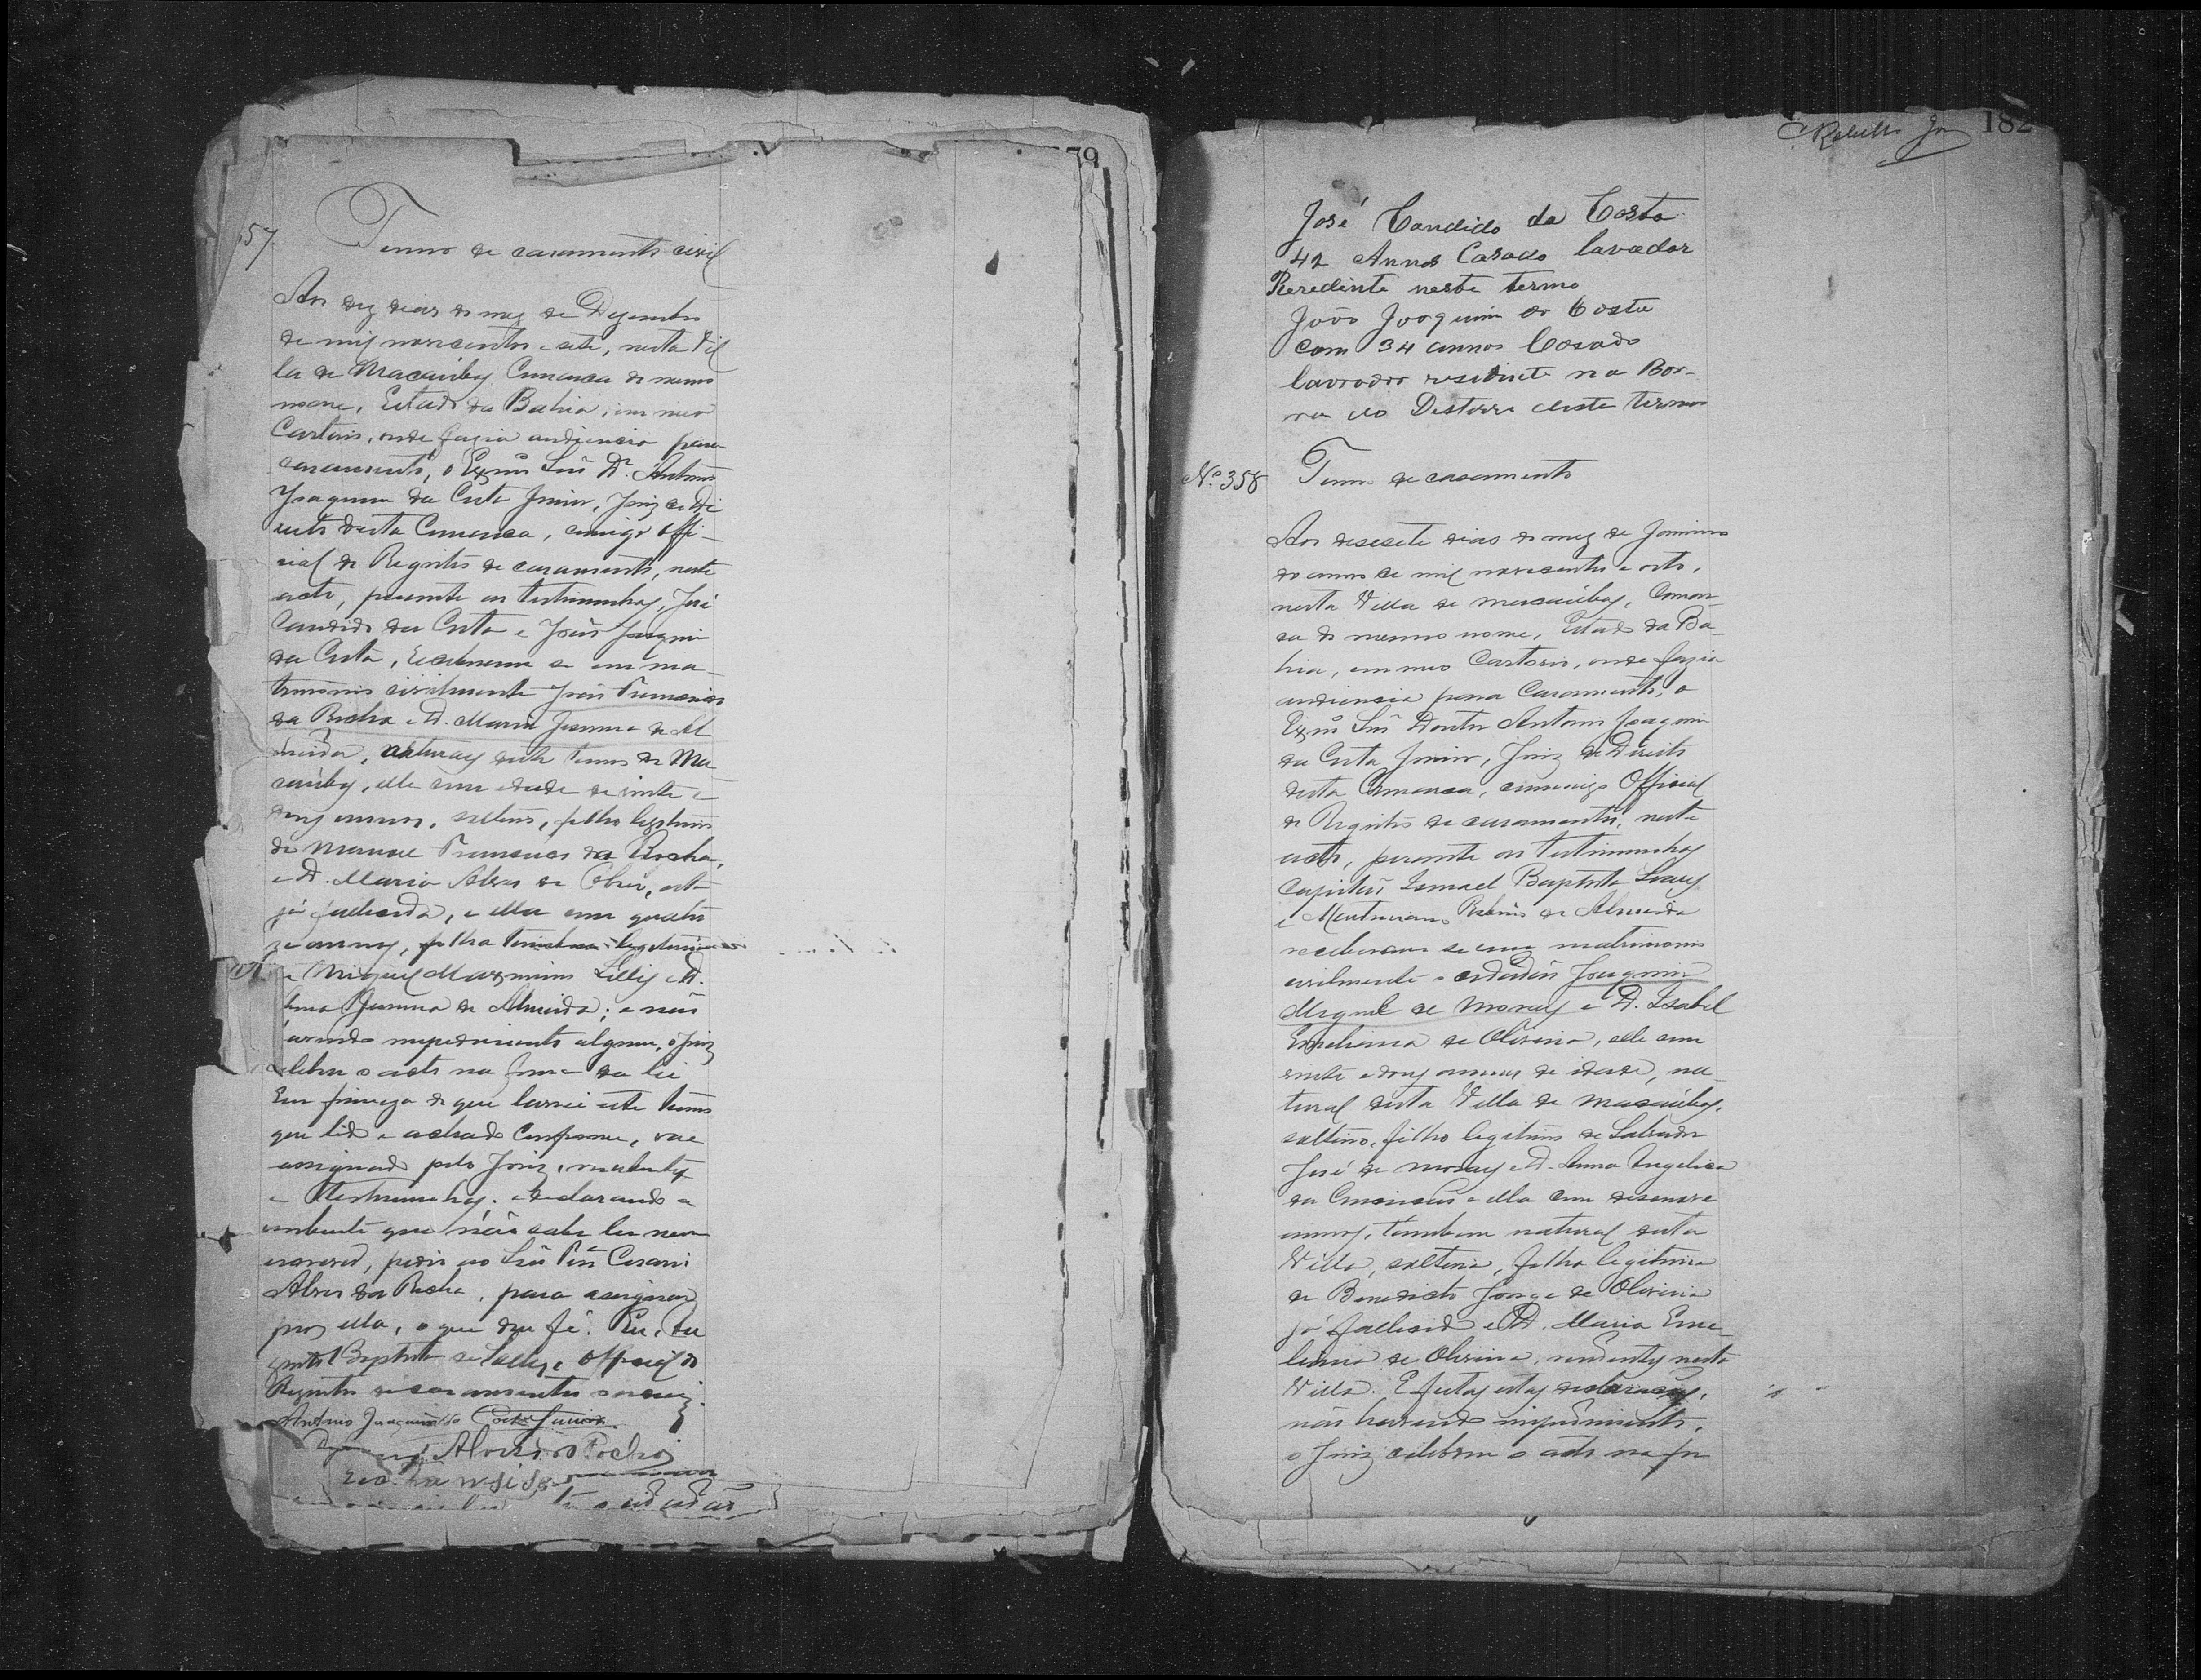 79
357
Termo de casamento civil
Aos dez dias do mez de Dezembro
de mil novecentos e sete, nesta Vil
la de Macaúbas Comarca do mesmo
nome, Estado da Bahia, em meu
Cartorio, onde fazia audiencia para
casamento, o Exmo Snr Dr. Antonio
Joaquim da Costa Junior, Juiz de Di
reito desta Comarca, comigo offi-
cial do Registro de casamento, neste
acto, perante as testimunhas, José
Candido da Costa e João Joaquim
da Costa, receberam se em ma
trimonio civilmente João Francisco
da Rocha e D. Maria Joanna de Al
meida, naturaes deste termo de Ma
caúbas, elle com edade de vinte e
dois annos, solteiro, filho legitimo
de Manoel Francisco da Rocha,
e D. Maria Alves de, esta
já fallecida, e ella com quator
ze annos, filha legitima
de Miguel Maximino Lellis e D.
Anna Joanna de Almeida; e não
havendo impedimento algum, o Juiz
celebrou o acto na forma da lei
Em firmeza do que lavrei este termo
que lido e achado conforme, vae
assignado pelo Juiz, nubentes
e testimunhas. e declarando a
nubente que não sabe ler nem
escrever, pediu ao Snr Cesario
Alves da Rocha, para assignar
por ella, o que dou fé. Eu,
Baptista de Salles, Official do
Registro de casamentos escrevi.
Antonio Joaquim da Costa Junior
Alves da Rocha
o cidadão
C. Rebello Jor 182
José Candido da Costa
42 Annos Casado lavador
Resedente neste termo
João Joaquim da Costa
com 34 annos Casado
lavrador residente na Bar-
ra do Desterro deste termo
No. 358 Termo de casamento
Aos desesete dias do mez de Janeiro
do anno de mil novecentos e oito,
nesta Villa de Macaúbas, Comar-
ca do mesmo nome, Estado da Ba-
hia, em meu Cartorio, onde fazia
audiencia para Casamento, o
Exmo Snr Doutor Antonio Joaquim
da Costa Junior, Juiz de Direito
desta Comarca, commigo Official
do Registro de casamentos, neste
acto, perante as testimunhas
Capitão Ismael Baptista Soares
e Rebello de Almeida
receberam se em matrimonio
civilmente o cidadão Joaquim
Miguel de Moraes e D. Isabel
Emeliana de Oliveira, elle com
vinte e dois annos de idade, na-
tural desta Villa de Macaúbas,
solteiro, filho legitimo de Salvador
José de Moraes e D. Anna Angelica
da Conceicão e ella com desenove
annos, tambem natural desta
Villa, solteira, filha legitima
de Benedicto Jorge de Oliveira
já fallecido e D. Maria Eme-
liana de Oliveira, residentes nesta
Villa. E feitas estas declaracoes,
não havendo impedimento,
o Juiz celebrou o acto na for